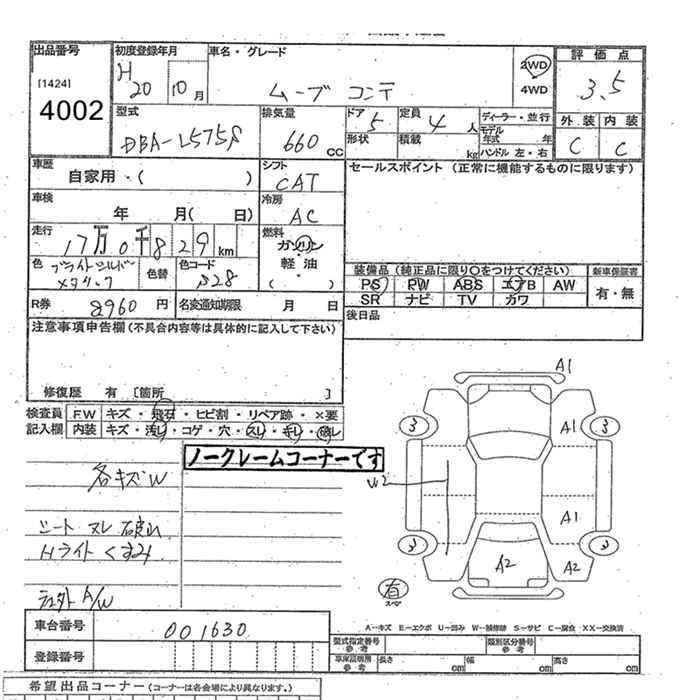 出品番号 初度登録年月 車名・グレード 評価点
[1424] H 20 10月 ムーブ コンテ 2WD 3.5
4002 4WD
型式 排気量 ドア 定員 ディーラー・並行 外装 内装
DBA-L575S 660 cc 5 4人 モデル年式 年 C C
形状 積載 kg ハンドル 左・右
車歴 シフト セールスポイント (正常に機能するものに限ります)
自家用・( ) CAT
車検 冷房
年 月( 日) AC
走行 燃料
17万0千829km ガソリン
色 色替 色コード ・軽油
ブライトシルバー S28 ( )
メタリック
装備品 (純正品に限り○をつけてください) 新車保証書
PS PW ABS エアB AW 有・無
SR ナビ TV カワ
R券 8960円 名変通知期限 月 日 後日品
注意事項申告欄 (不具合内容等は具体的に記入して下さい)
修復歴 有 [箇所 ]
検査員 F.W キズ・飛石・ヒビ割・リペア跡・×要
記入欄 内装 キズ・汚レ・コゲ・穴・スレ・キレ・破レ
ノークレームコーナーです
各キズW
シート スレ
Hライト くすみ
A/W
A1
3 A1 3
W2
A1
3 3
A2 A2
有
スペア
A-キズ E-エクボ U-凹み W-補修跡 S-サビ C-腐食 XX-交換済
車台番号 001630
登録番号
型式指定番号 参考 類別区分番号 参考
車庫証明用 参考 長さ cm 幅 cm 高さ cm
希望出品コーナー (コーナーは各会場により異なります。)